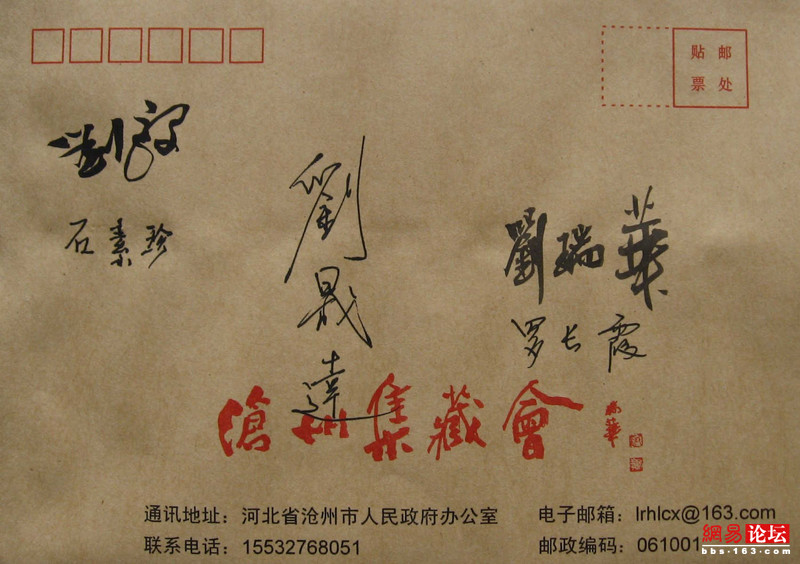 贴邮
票处
石素珍
劉晟達
劉瑞華
罗长霞
滄州集藏會
通讯地址：河北省沧州市人民政府办公室
联系电话：15532768051
电子邮箱：lrhlcx@163.com
邮政编码：061001
網易论坛
bbs·163.com